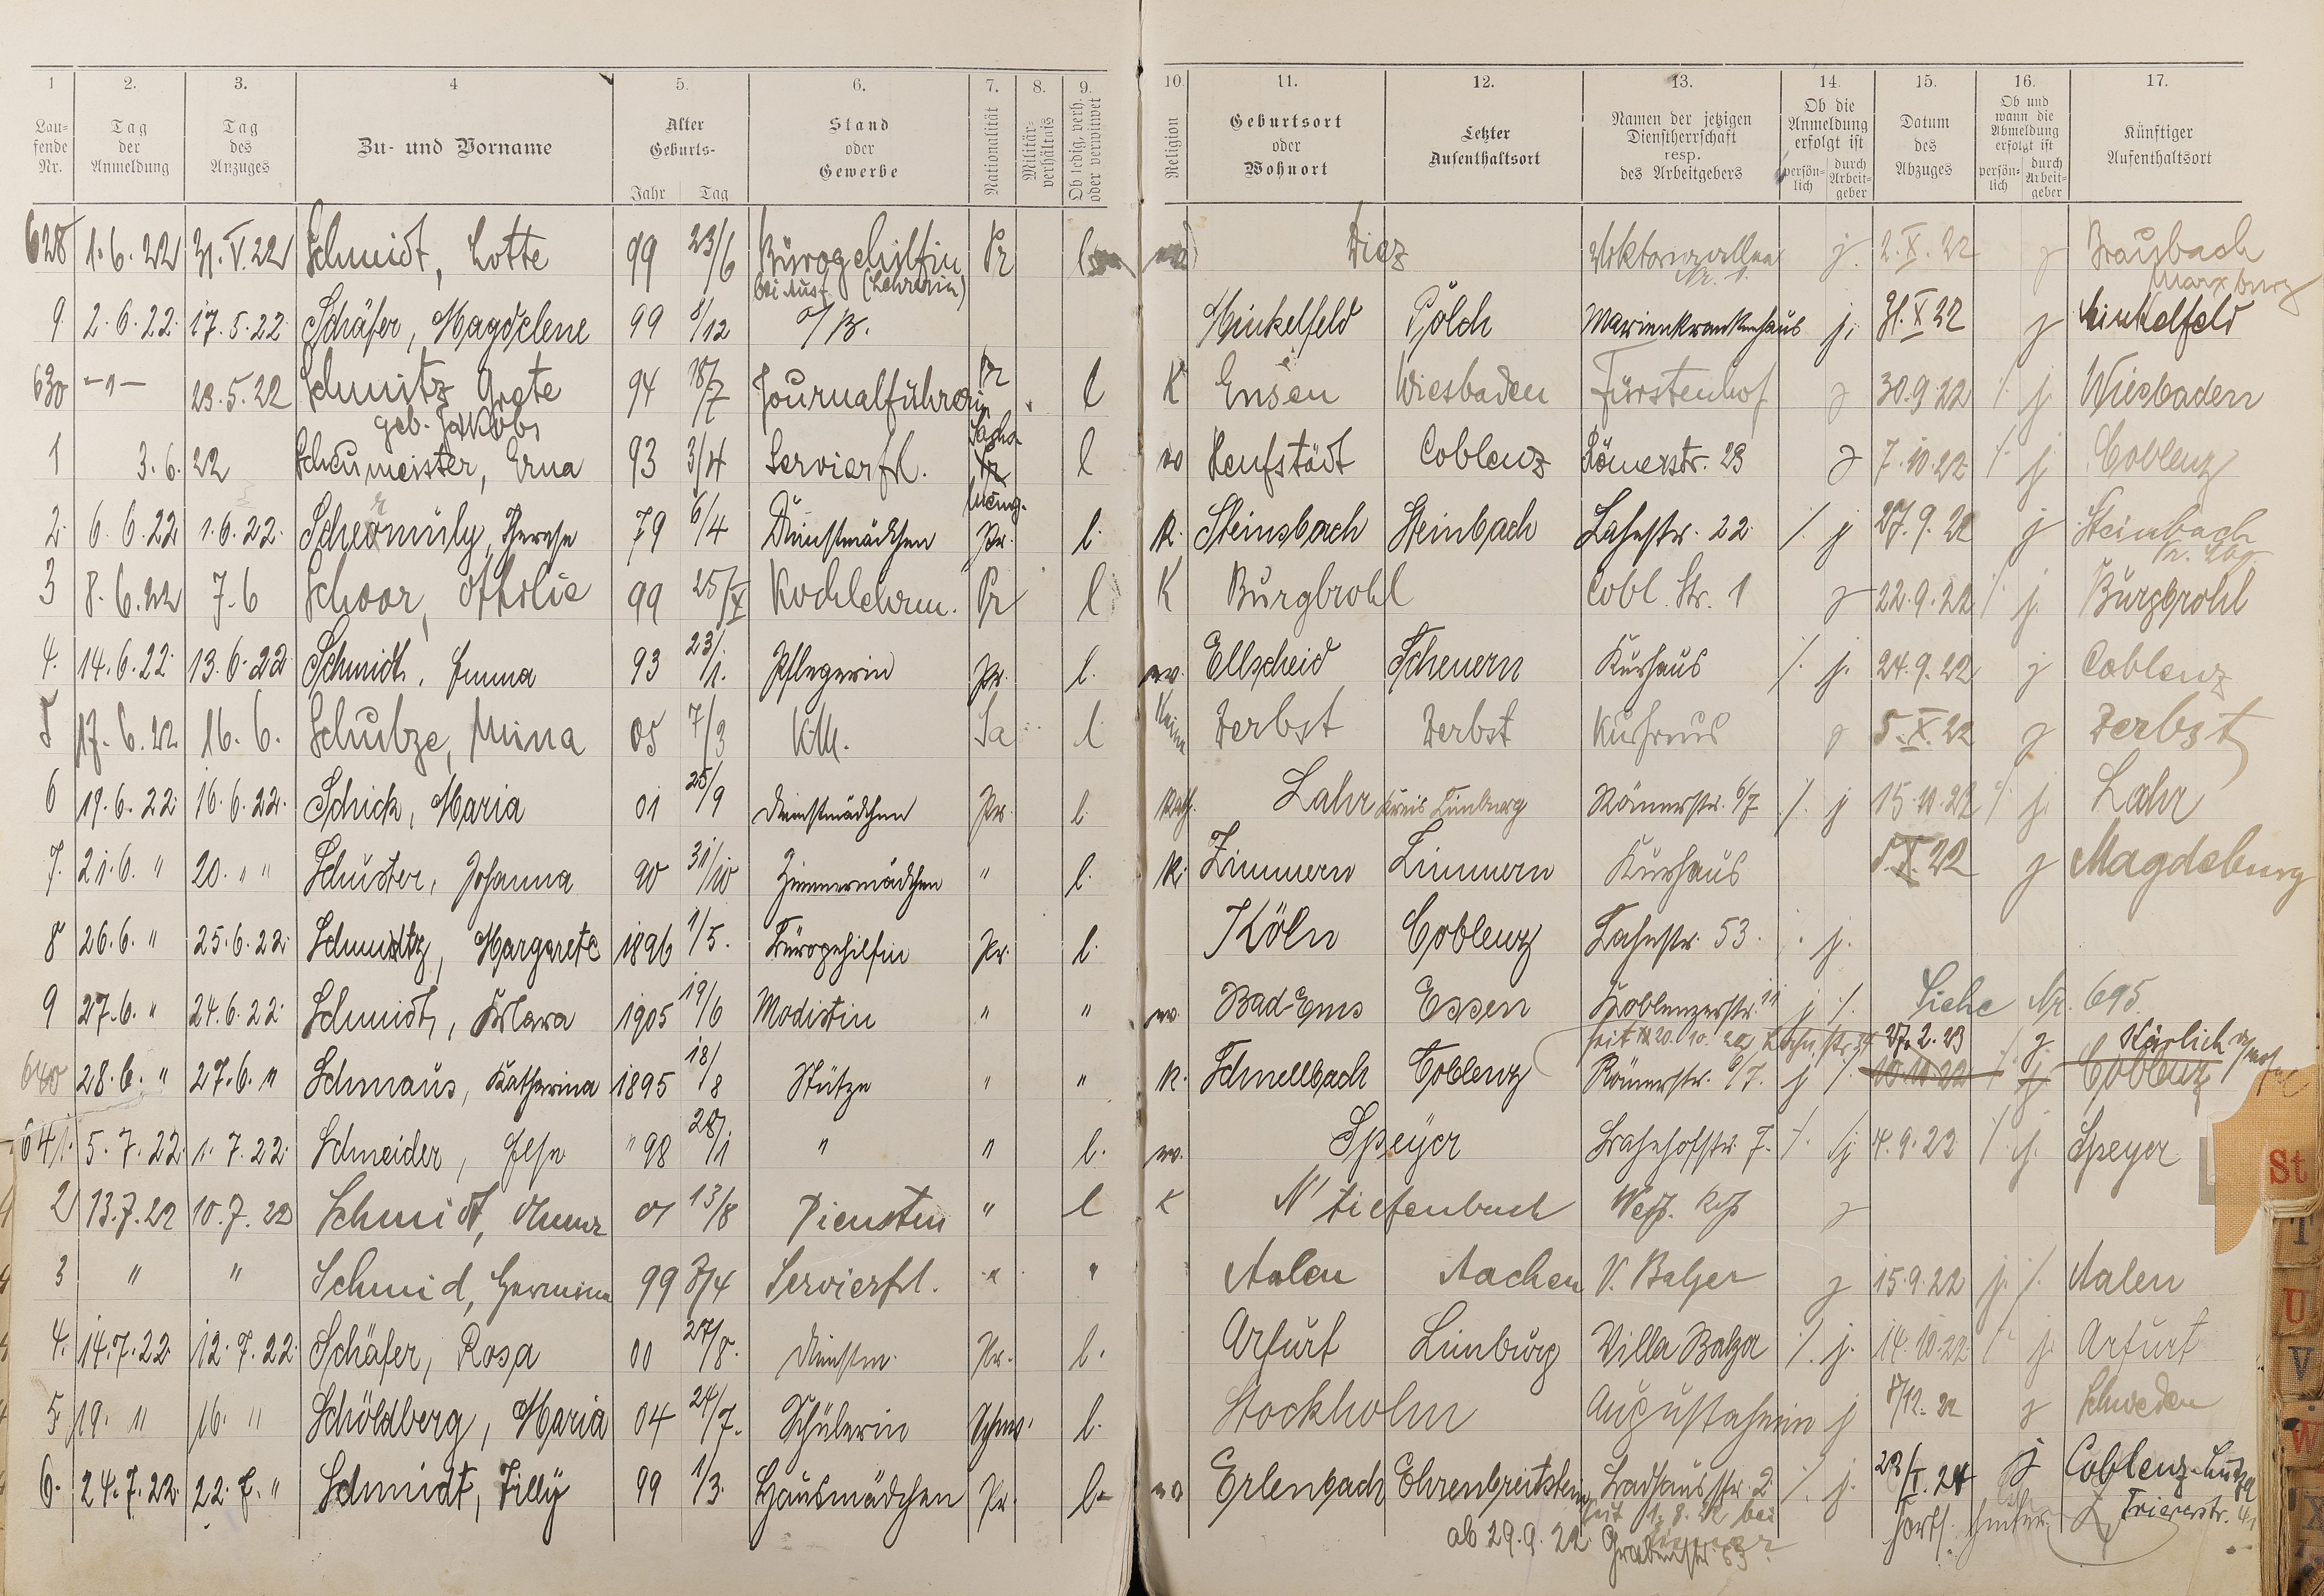 1 2. 3. 4 5. 6. 7. 8. 9. 10. 11. 12. 13. 14. 15. 16. 17.
Lau-fende Nr. Tag der Anmeldung Tag des Anzuges Zu- und Vorname Alter Geburts- Jahr Tag Stand oder Gewerbe Nationalität Militär-verhältnis Ob ledig, verh. oder verwitwet Religion Geburtsort oder Wohnort Letzter Aufenthaltsort Namen der jetzigen Dienstherrschaft resp. des Arbeitgebers Ob die Anmeldung erfolgt ist persön-lich durch Arbeit-geber Datum des Abzuges Ob und wann die Abmeldung erfolgt ist persön-lich durch Arbeit-geber Künftiger Aufenthaltsort
628 1.6.22 31.V.22 Schmidt, Lotte 99 23/6 Bürogehilfin Pr l Diez Viktoriaallee j. 2.X.22 j Braubach
bei (Lehrerin) Nr. 1. Marxburg
9 2.6.22. 17.5.22 Schäfer, Magdelene 99 8/12 o/B. Hinkelfeld Pölch Marienkrankenhaus j. 31.X 22 j Hinkelfeld
630 -"- 23.5.22 Schmitz Grete 94 18/7 Journalführerin Pr l K Ensen Wiesbaden Fürstenhof j 30.9.22 /. j. Wiesbaden
geb. Jakobs
1 3.6.22 Scheumeister, Erna 93 3/4 Servierfrl. l Henfstädt Coblenz Römerstr. 23 j 7.10.22 /. j. Coblenz
2. 6.6.22 1.6.22. Therese 79 6/4 Dienstmädchen Pr. l. K. Steinsbach Steinbach Lahnstr. 22 /. j 27.9.22 j Steinbach
3 8.6.22 7.6 Schoor, Othilie 99 25/X Kochlehrn. Pr l K Burgbrohl Cobl. Str. 1 j 22.9.22 /. j. Burgbrohl
4. 14.6.22. 13.6.22 Schmidt, Emma 93 23/1. Pflegerin Pr. l. ev. Ellscheid Scheuern Kurhaus /. j. 24.9.22 j Coblenz
5 17.6.22 16.6. Schubze, Minna 05 7/3 K.M. Sa l Keine Zerbst Zerbst Kurhaus j 5.X.22 j Zerbst
6 19.6.22. 16.6.22. Schick, Maria 01 25/9 Dienstmädchen Pr. l. Kath. Lahr Kreis Limburg Römerstr. 6/7 /. j 15.11.22 /. j. Lahr
7. 21.6. " 20. " " Schuster, Johanna 90 31/10 Zimmermädchen " l. K. Zimmern Zimmern Kurhaus 5.X.22 j Magdeburg
8 26.6. " 25.6.22. Schmitz, Margarete 1896 1/5. Bürogehilfin Pr. l. Köln Coblenz Lahnstr. 53. j.
9 27.6. " 24.6.22. Schmidt, Klara 1905 19/6 Modistin " " ev. Bad-Ems Essen Koblenzerstr. 11 j /. Siehe Nr. 695.
seit 20.10.22 27.2.23 j Kärlich
640 28.6. " 27.6. " Schmaus, Katharina 1895 18/8 Stütze " " K. Schnellbach Coblenz Römerstr. 6/7. j /. 10.10.22 /. j. Coblenz
641. 5.7.22. 1.7.22. Schneider, Else " 98 28/1 " " l. ev. Speyer Bahnhofstr. 7. /. j 4.9.23 /. j. Speyer
2 13.7.22 10.7.22 Schmidt, 01 13/8 Diensten " l K N'tiefenbach j
3 " " Schmid, Hermine 99 8/4 Servierfrl. " " Aalen Aachen V. Balzer j 15.9.22 j. /. Aalen
4. 14.7.22. 12.7.22 Schäfer, Rosa 00 27/8. Dienstm. Pr. l. Arfurt Limburg Villa Balzer /. j. 14.10.22. /. j. Arfurt
5 19. " 16. " Schöldberg, Maria 04 24/7. Schülerin Schwe. l. Stockholm Augustaheim j 8/12.22 j Schweden
6. 24.7.22. 22.7. " Schmidt, Tilly 99 1/3. Hausmädchen Pr. l. Erlenbach Ehrenbreitstein 2 /. j. 23/I.24 j Coblenz-Lützel
seit 1.8.22 bei Triererstr. 41
ab 29.9.22
St
T
U
V
W